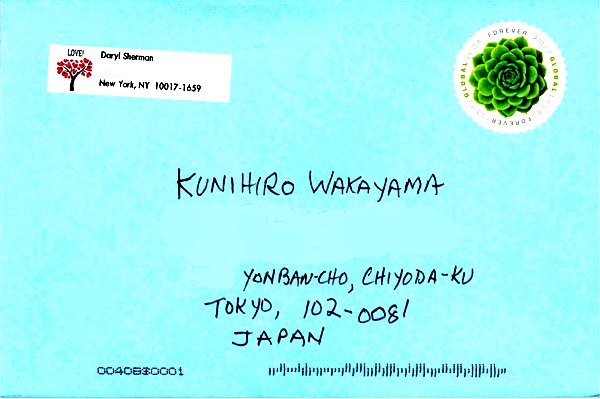 LOVE!
Daryl Sherman
New York, NY 10017-1659
GLOBAL USA FOREVER 2017
GLOBAL
FOREVER
KUNIHIRO WAKAYAMA
YONBAN-CHO, CHIYODA-KU
TOKYO, 102-0081
JAPAN
0040830001